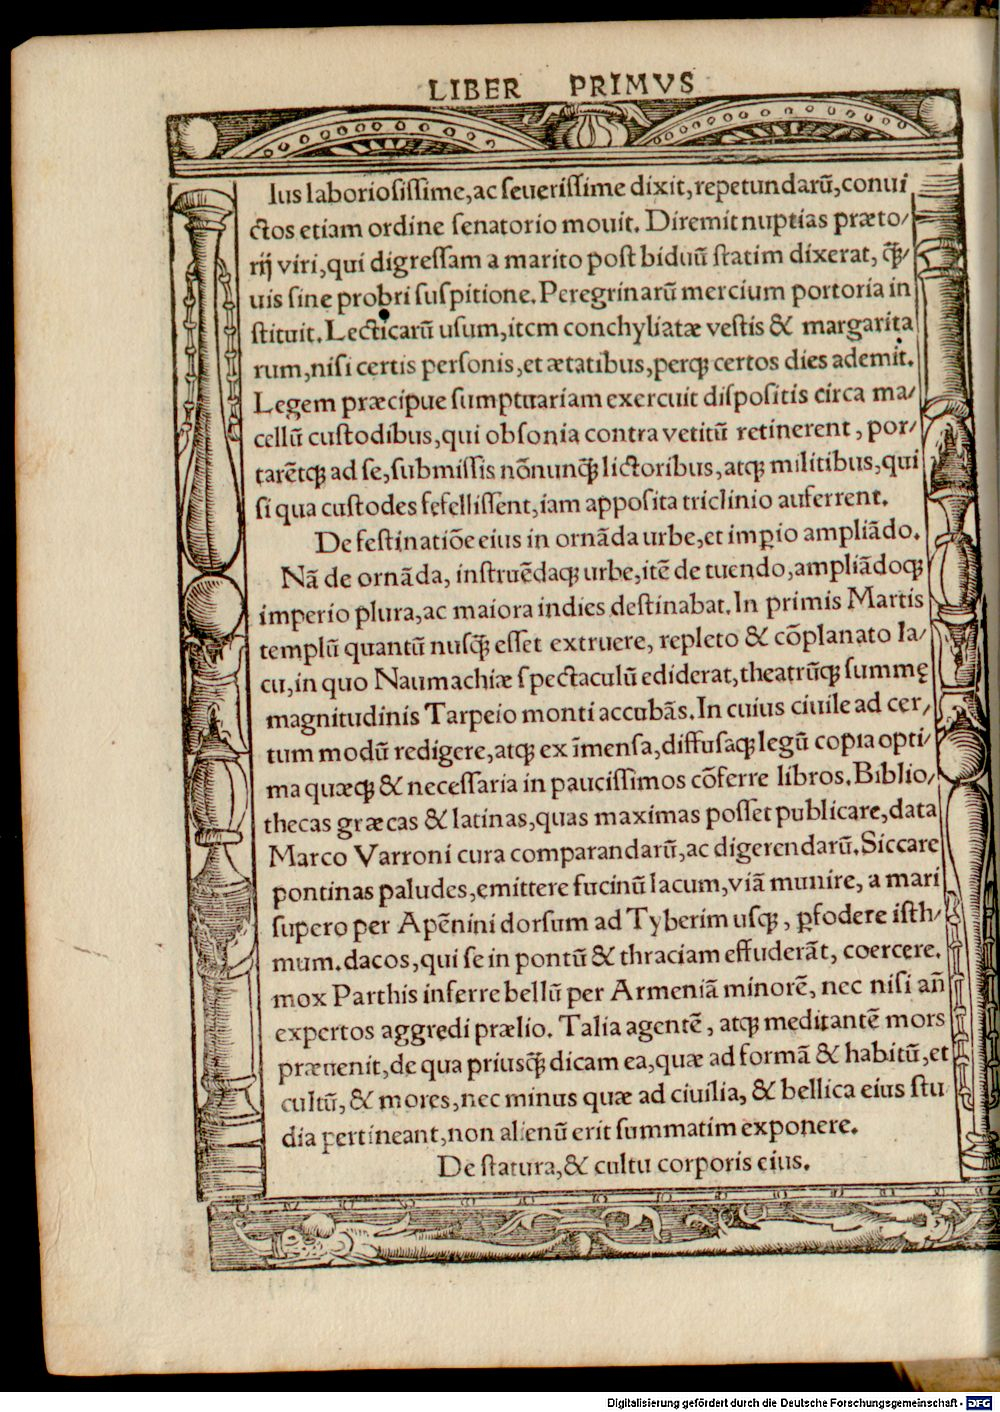 LIBER PRIMVS
Ius laboriosissime, ac seuerissime dixit, repetundarū, conui
ctos etiam ordine senatorio mouit. Diremit nuptias præto/
rij viri, qui digressam a marito post biduū statim dixerat, q̄ꝫ/
uis sine probri suspitione. Peregrinarū mercium portoria in
stituit. Lecticarū usum, item conchyliatæ vestis & margarita
rum, nisi certis personis, et ætatibus, perqꝫ certos dies ademit.
Legem præcipue sumptuariam exercuit dispositis circa ma/
cellū custodibus, qui obsonia contra vetitū retinerent, por/
tarētqꝫ ad se, submissis nōnunq̄ꝫ lictoribus, atqꝫ militibus, qui
si qua custodes fefellissent, iam apposita triclinio auferrent.
De festinatiōe eius in ornāda urbe, et imꝑio ampliādo.
Nā de ornāda, instruēdaqꝫ urbe, itē de tuendo, ampliādoqꝫ
imperio plura, ac maiora indies destinabat. In primis Martis
templū quantū nusq̄ꝫ esset extruere, repleto & cōplanato la/
cu, in quo Naumachiæ spectaculū ediderat, theatrūqꝫ summę
magnitudinis Tarpeio monti accubās. In cuius ciuile ad cer/
tum modū redigere, atqꝫ ex īmensa, diffusaqꝫ legū copia opti/
ma quæqꝫ & necessaria in paucissimos cōferre libros. Biblio/
thecas græcas & latinas, quas maximas posset publicare, data
Marco Varroni cura comparandarū, ac digerendarū. Siccare
pontinas paludes, emittere fucinū lacum, viā munire, a mari
supero per Apēnini dorsum ad Tyberim usqꝫ, ꝑfodere isth/
mum. dacos, qui se in pontū & thraciam effuderāt, coercere.
mox Parthis inferre bellū per Armeniā minorē, nec nisi an̄
expertos aggredi prælio. Talia agentē, atqꝫ meditantē mors
præuenit, de qua priusq̄ꝫ dicam ea, quæ ad formā & habitū, et
cultū, & mores, nec minus quæ ad ciuilia, & bellica eius stu
dia pertineant, non alienū erit summatim exponere.
De statura, & cultu corporis eius.
Digitalisierung gefördert durch die Deutsche Forschungsgemeinschaft - DFG